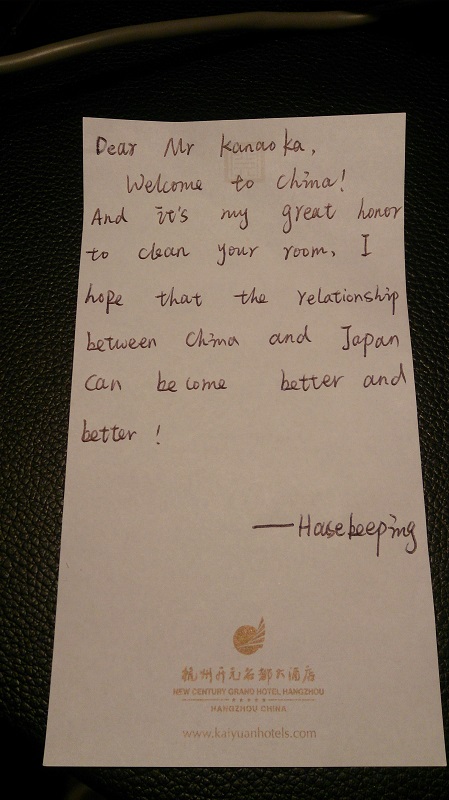 Dear Mr Kanaoka,
Welcome to China!
And it's my great honor
to clean your room, I
hope that the relationship
between China and Japan
can become better and
better!
—Hasekeeping
杭州开元名都大酒店
NEW CENTURY GRAND HOTEL HANGZHOU
★★★★★
HANGZHOU CHINA
www.kaiyuanhotels.com